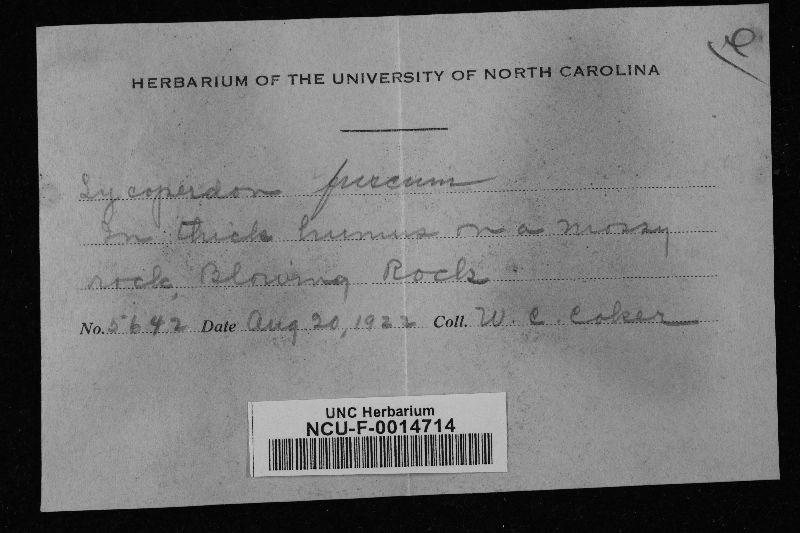 HERBARIUM OF THE UNIVERSITY OF NORTH CAROLINA
Lycoperdon fuscum
In thick humus on a mossy
rock, Blowing Rock
No. 5642 Date Aug 20, 1922 Coll. W. C. Coker
UNC Herbarium
NCU-F-0014714